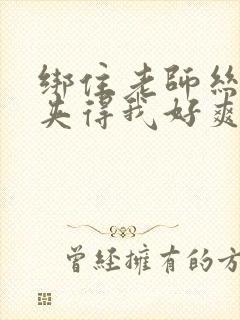 綁住老師絲
夾得我好爽
曾經擁有的方